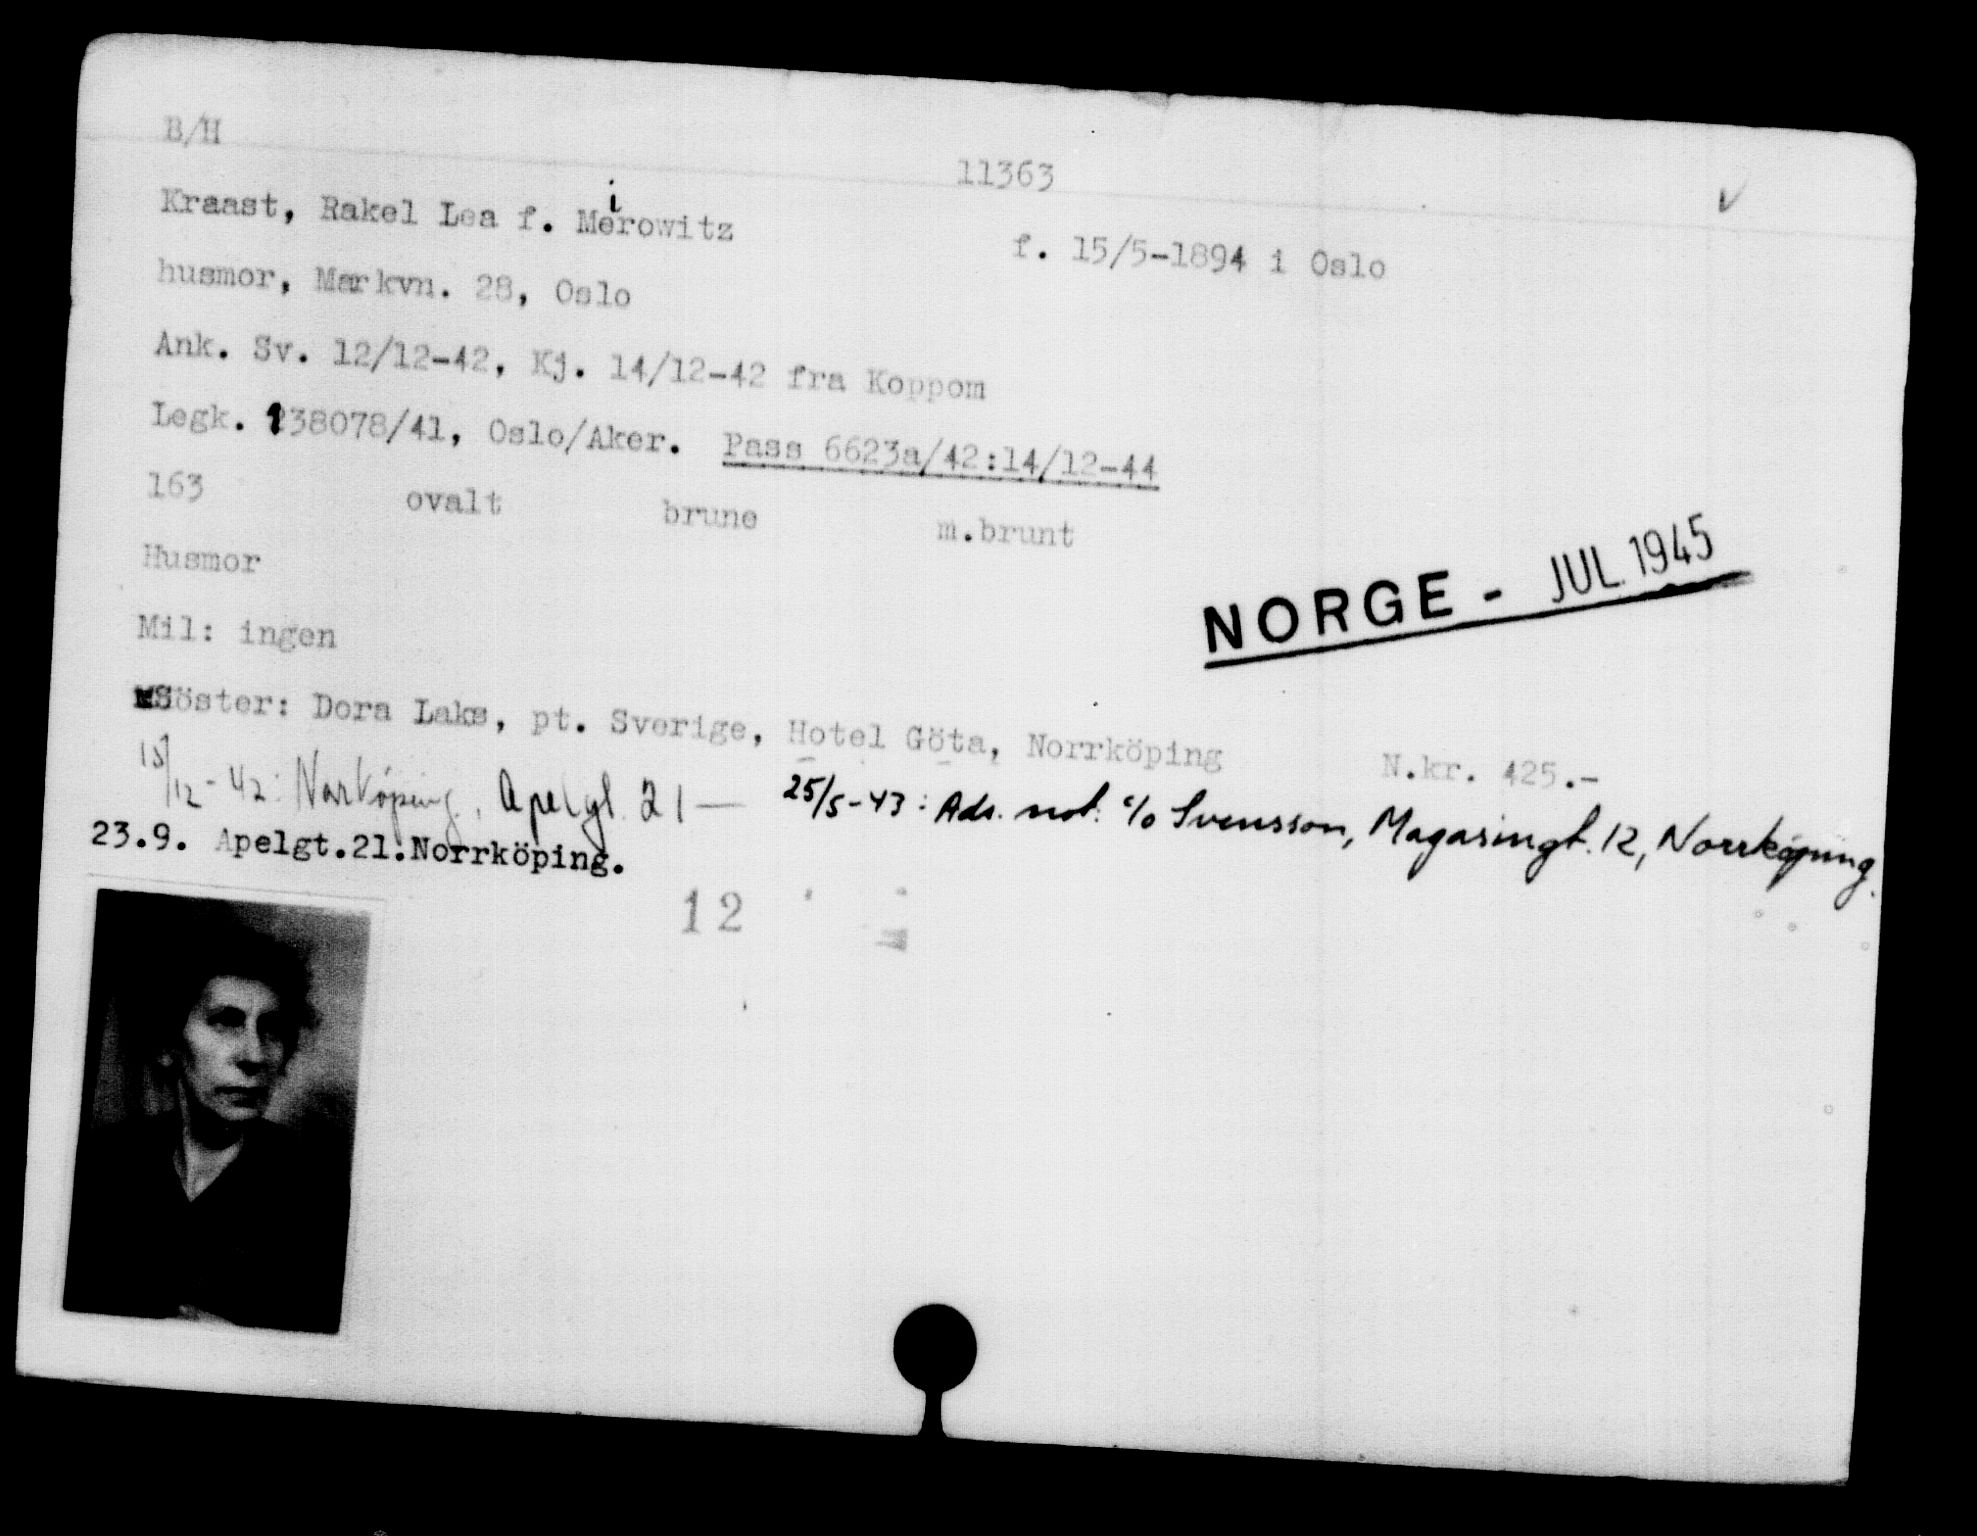 B/H
11363
Kraast, Rakel Lea f. Meirowitz
f. 15/5-1894 i Oslo
husmor, Markvn. 28, Oslo
Ank. Sv. 12/12-42, Kj. 14/12-42 fra Koppom
Legk. 138078/41, Oslo/Aker. Pass 6623a/42:14/12-44
163 ovalt brune m.brunt
Husmor
NORGE - JUL. 1945
Mil: ingen
Söster: Dora Laks, pt. Sverige, Hotel Göta, Norrköping N.kr. 425.-
15/12-42: Norrköping, Apelgt. 21 — 25/5-43: Ads. not: c/o Svensson, Magasingt. 12, Norrköping.
23.9. Apelgt.21.Norrköping.
12